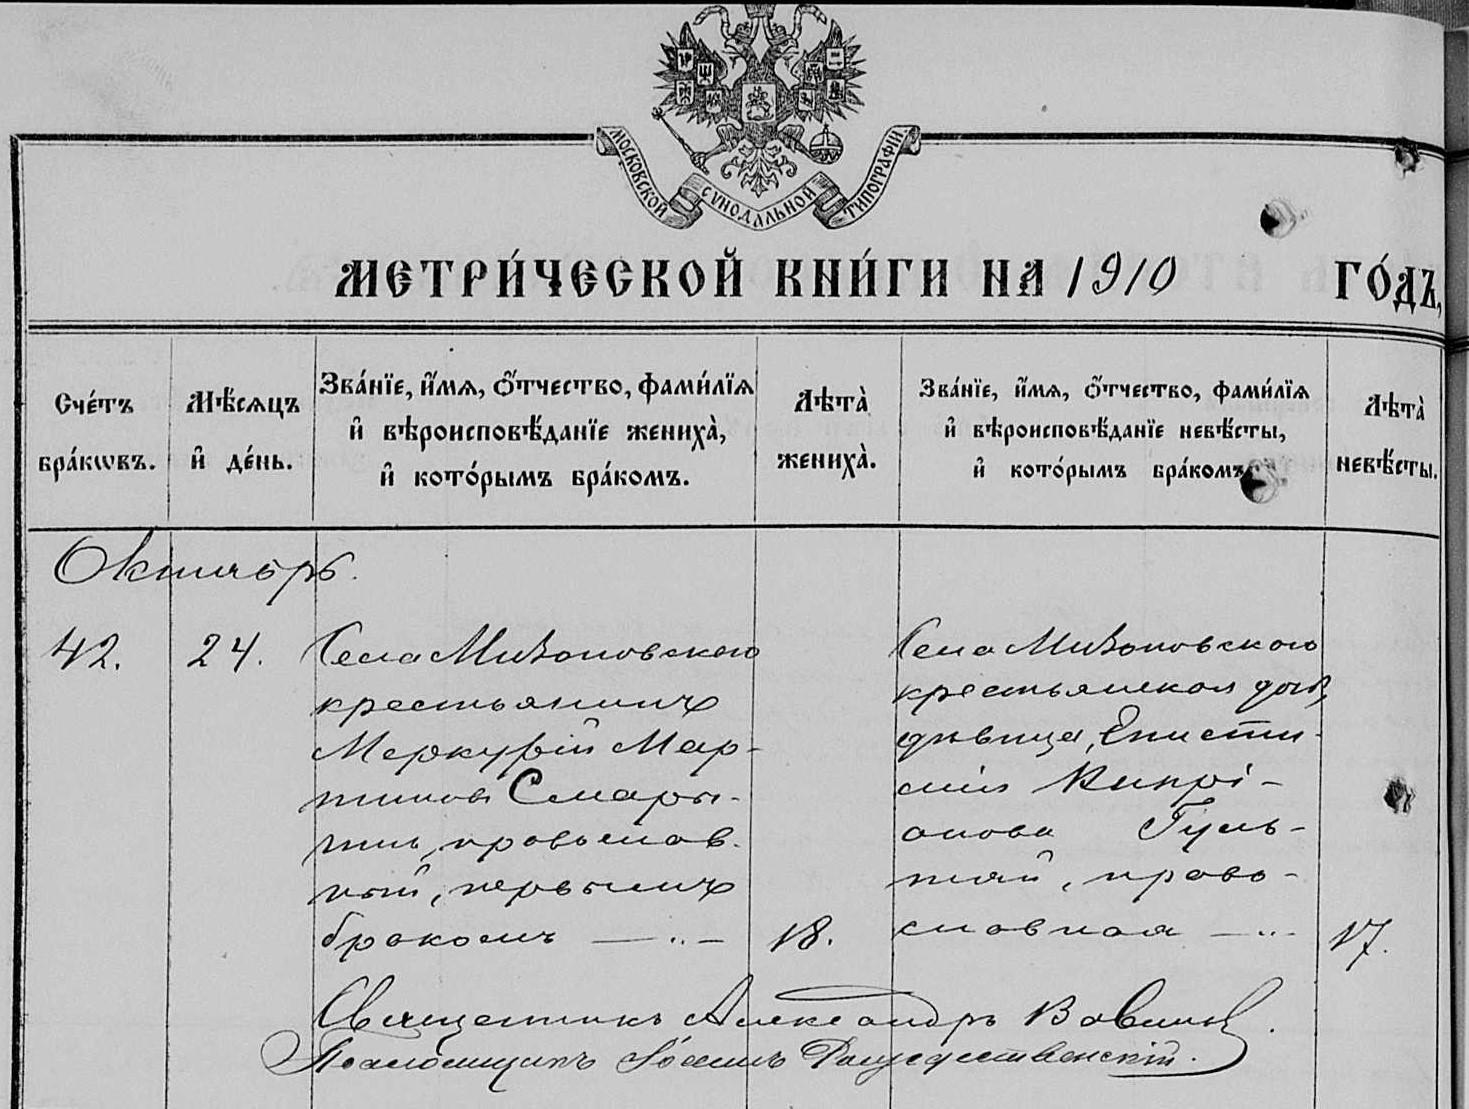 МОСКОВСКОЙ СѴНОДАЛЬНОЙ ТИПОГРАФІИ
МЕТРИ́ЧЕСКОЙ КНИ́ГИ НА 1910 ГО́ДЪ,
Сче́тъ бра́кѡвъ.
Мѣ́сѧцъ и҆ де́нь.
Зва́нїе, и҆́мѧ, ѻ҆́тчество, фами́лїѧ
и҆ вѣроисповѣ́данїе жениха̀,
и҆ кото́рымъ бра́комъ.
Лѣта̀ жениха̀.
Зва́нїе, и҆́мѧ, ѻ҆́тчество, фами́лїѧ
и҆ вѣроисповѣ́данїе невѣ́сты,
и҆ кото́рымъ бра́комъ
Лѣта̀ невѣ́сты.
Октябрь.
42.
24.
Села
крестьянинъ
Меркурій Мар-
тиновъ
православ-
ный, первымъ
бракомъ — „ —
18.
Села
крестьянская
дѣвица,
Кипрі-
анова
право-
славная — „ —
17.
Священникъ Александръ
Псаломщикъ Іоаннъ Рождественскій.